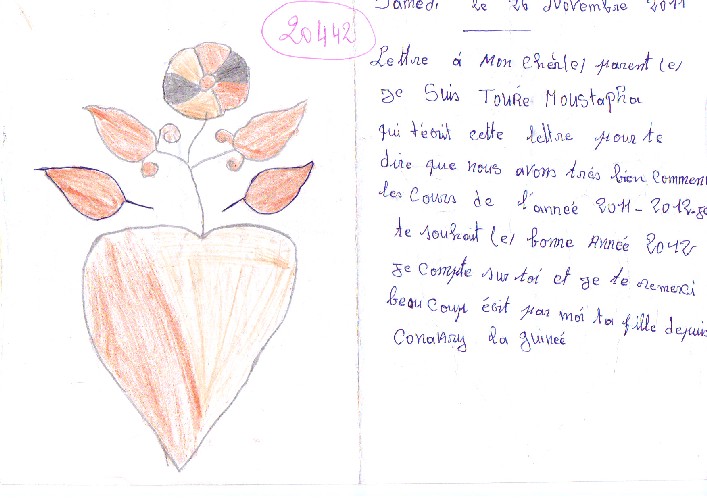 20442
Samedi le 26 Novembre 2011
Lettre à Mon chèr(e) parent(e)
Je Suis TOURE Moustapha
qui t'écrit cette lettre pour te
dire que nous avons très bien Commenc
les Cours de l'anneé 2011-2012. Je
te souhait(e) bonne Année 2012
Je Compte sur toi et Je te remerci
beaucoup écrit par moi ta fille depuis
Conakry La guineé